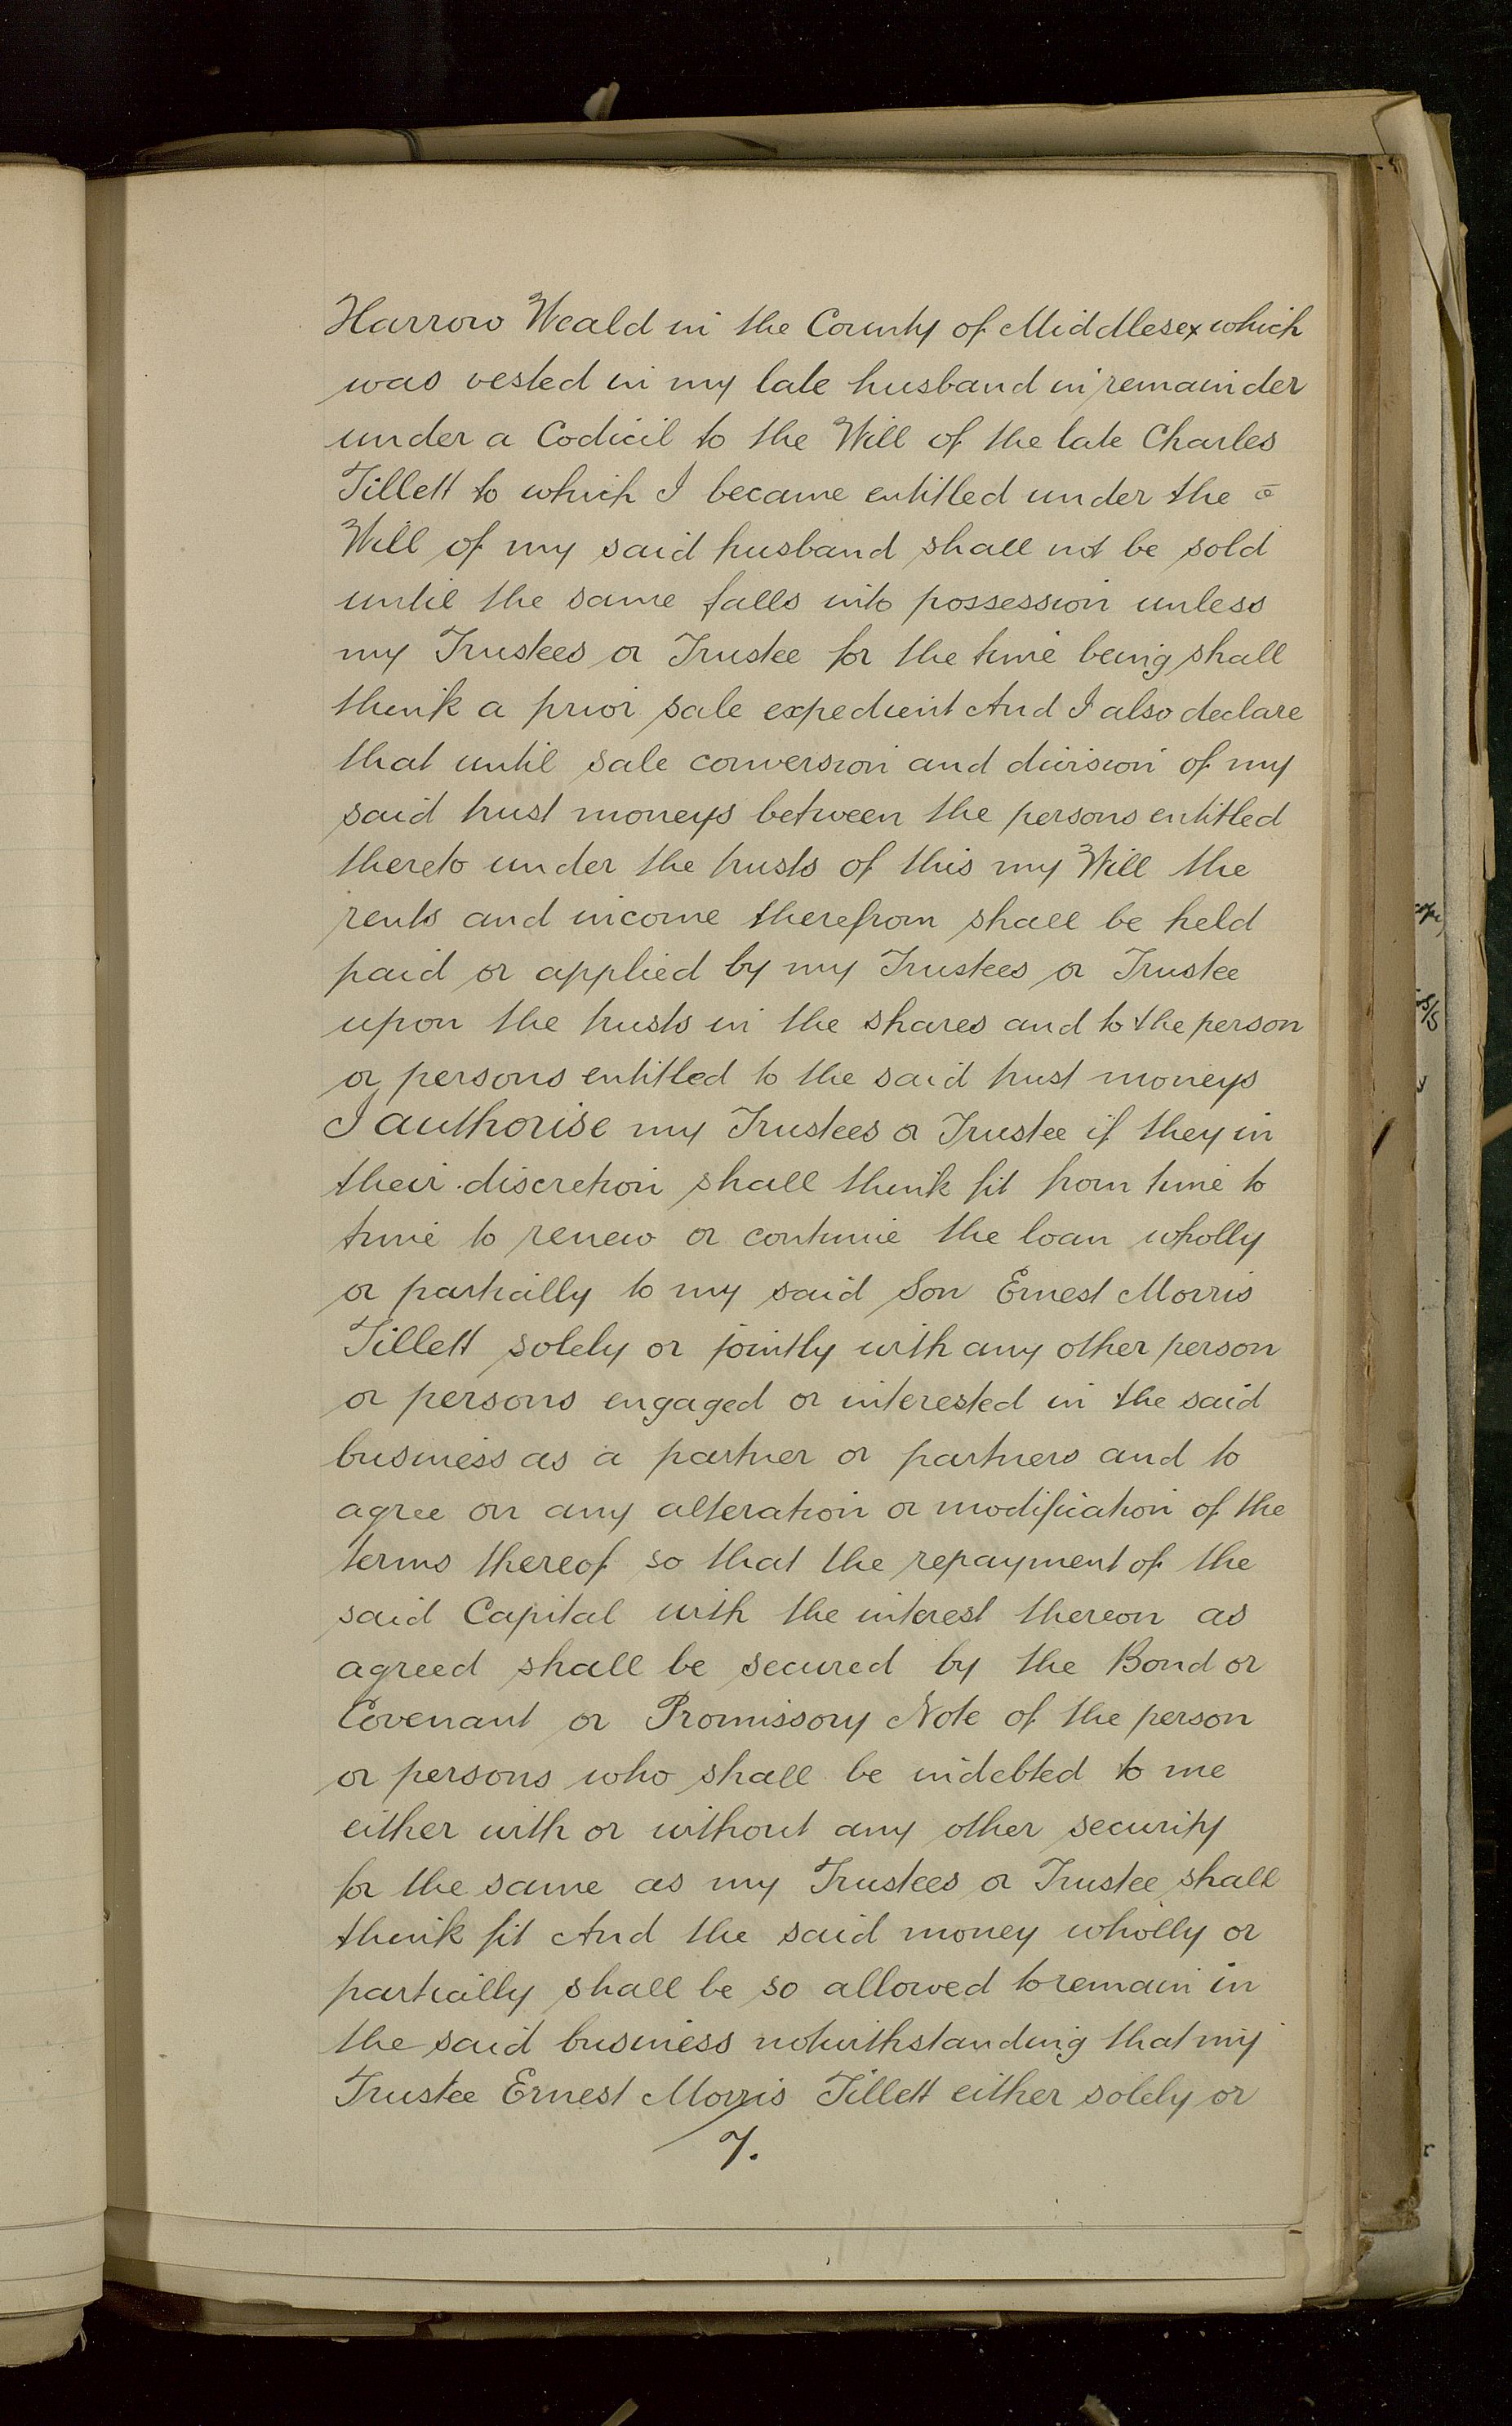 Harrow Weald in the County of Middlesex which
was vested in my late husband in remainder
under a Codicil to the Will of the late Charles
Tillett to which I became entitled under the
Will of my said husband shall not be sold
until the same falls into possession unless
my Trustees or Trustee for the time being shall
think a prior sale expedient And I also declare
that until sale conversion and division of my
said trust moneys between the persons entitled
thereto under the trusts of this my Will the
rents and income therefrom shall be held
paid or applied by my Trustees or Trustee
upon the trusts in the shares and to the person
or persons entitled to the said trust moneys
I authorise my Trustees or Trustee if they in
their discretion shall think fit from time to
time to renew or continue the loan wholly
or partially to my said Son Ernest Morris
Tillett solely or jointly with any other person
or persons engaged or interested in the said
business as a partner or partners and to
agree on any alteration or modification of the
terms thereof so that the repayment of the
said Capital with the interest thereon as
agreed shall be secured by the Bond or
Covenant or Promissory Note of the person
or persons who shall be indebted to me
either with or without any other security
for the same as my Trustees or Trustee shall
think fit And the said money wholly or
partially shall be so allowed to remain in
the said business notwithstanding that my
Trustee Ernest Morris Tillett either solely or
7.